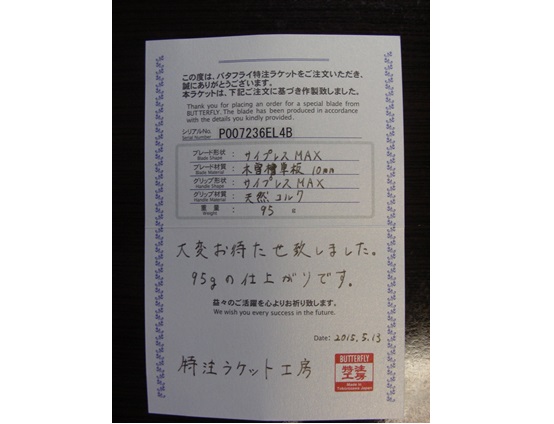 この度は、バタフライ特注ラケットをご注文いただき、
誠にありがとうございます。
本ラケットは、下記ご注文に基づき作製致しました。
Thank you for placing an order for a special blade from
BUTTERFLY. The blade has been produced in accordance
with the details you kindly provided.
シリアルNo.
Serial Number
P007236EL4B
ブレード形状 : サイプレスMAX
Blade Shape
ブレード材質 : 木曽檜単板 10mm
Blade Material
グリップ形状 : サイプレスMAX
Handle Shape
グリップ材質 : 天然コルク
Handle Material
重量 : 95 g
Weight
大変お待たせ致しました。
95gの仕上がりです。
益々のご活躍を心よりお祈り致します。
We wish you every success in the future.
Date: 2015.5.13
特注ラケット工房
BUTTERFLY
特注
工房
Made in
Tokorozawa Japan